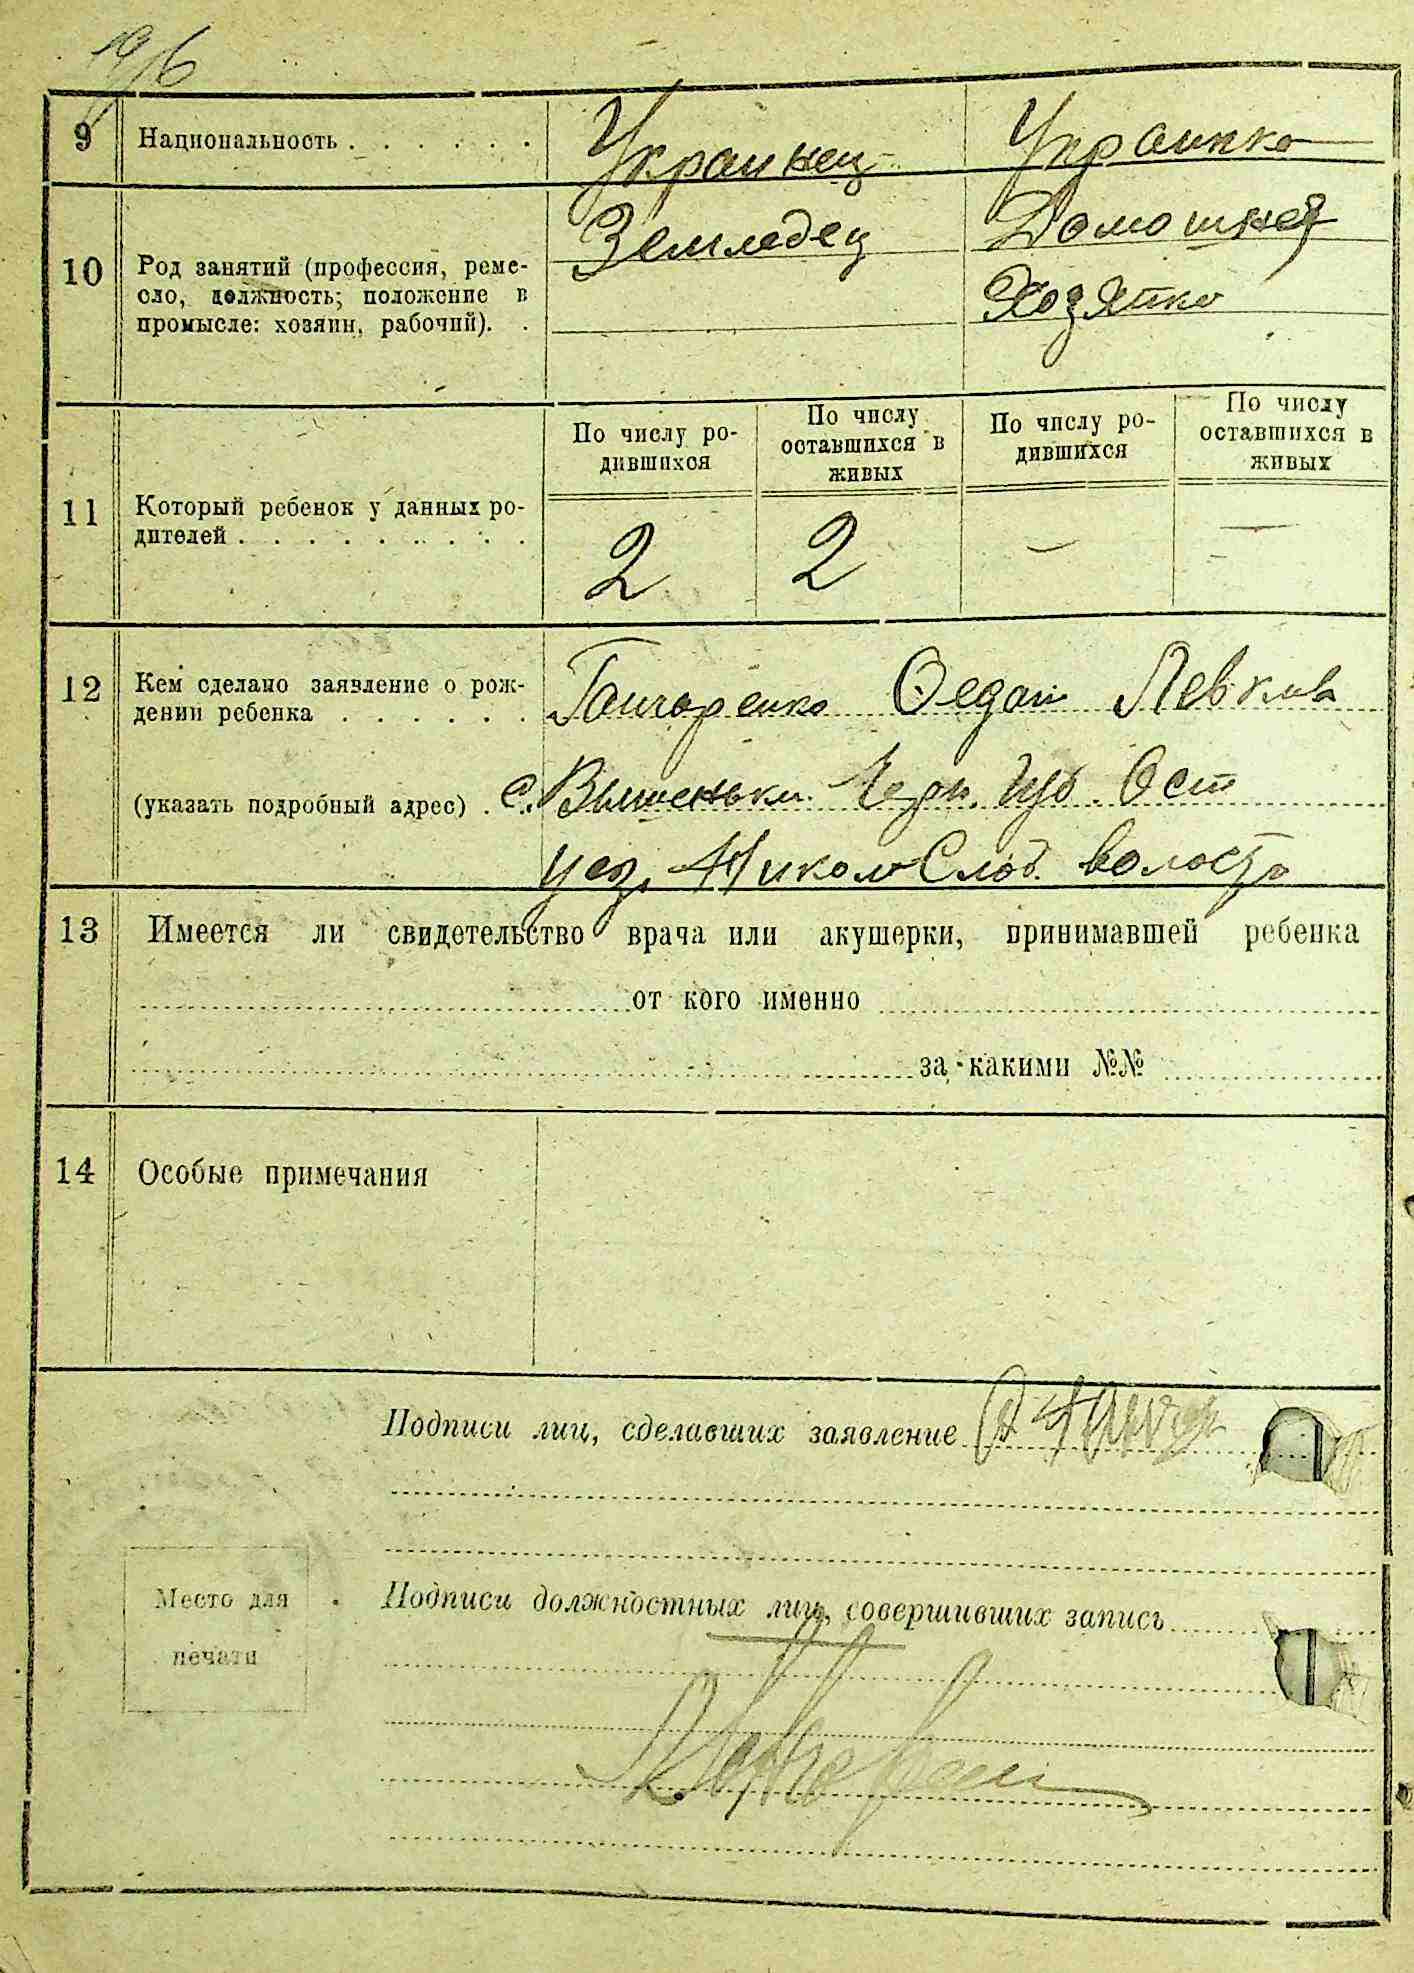 9 Национальность . . . . . . Украинец Украинка
10 Род занятий (профессия, реме-
сло, должность; положение в
промысле: хозяин, рабочий). .
Земледец
Домошняя
Хозяйка
11 Который ребенок у данных ро-
дителей . . . . . . . . .
По числу ро-
дившихся
По числу
оставшихся в
живых
По числу ро-
дившихся
По числу
оставшихся в
живых
2 2 — —
12 Кем сделано заявление о рож-
дении ребенка . . . . . . Гончаренко Федан Левков
(указать подробный адрес) . с. Вышеньки Черн. Губ. Ост
уез. Никол Слоб. волость
13 Имеется ли свидетельство врача или акушерки, принимавшей ребенка
от кого именно
за какими №№
14 Особые примечания
Подписи лиц, сделавших заявление
Подписи должностных лиц, совершивших запись
Место для
печати